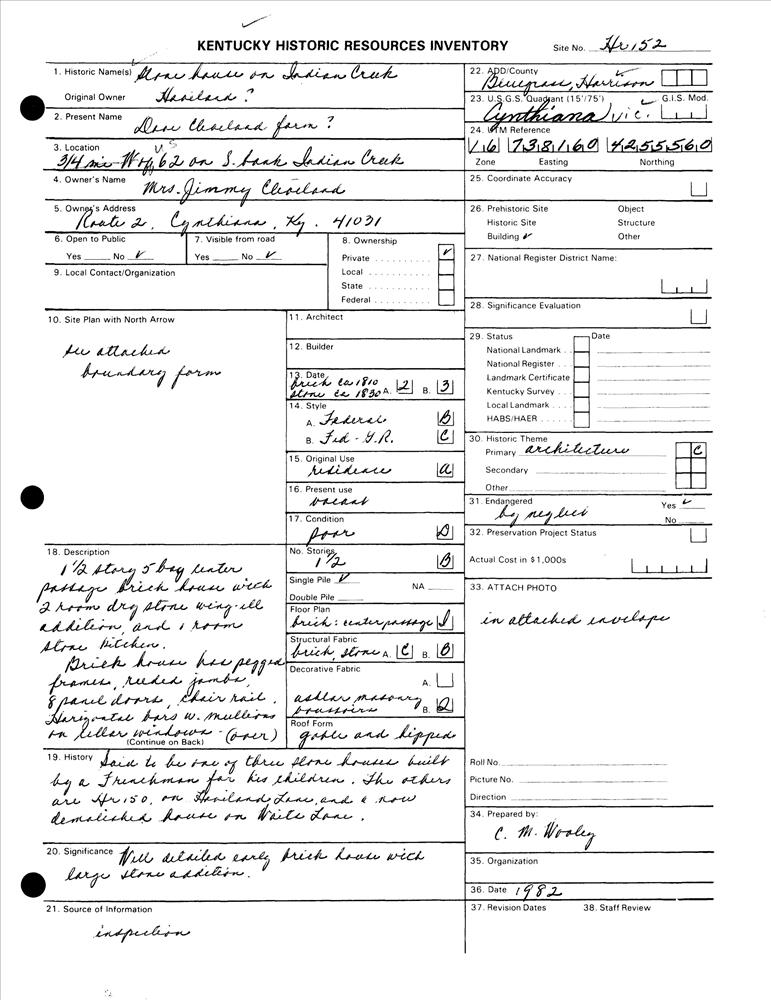 KENTUCKY HISTORIC RESOURCES INVENTORY
Site No. Hr 152
1. Historic Name(s) Stone house on Indian Creek
Original Owner Haviland?
2. Present Name
Dave Cleveland farm?
3. Location
3/4 mi W of US 62 on S. bank Indian Creek
4. Owner's Name
Mrs. Jimmy Cleveland
5. Owner's Address
Route 2, Cynthiana, Ky. 41031
6. Open to Public
Yes No ✓
7. Visible from road
Yes No ✓
8. Ownership
Private ✓
Local
State
Federal
9. Local Contact/Organization
10. Site Plan with North Arrow
see attached
boundary form
11. Architect
12. Builder
13. Date
brick ca 1810
stone ca 1830 A. 2 B. 3
14. Style
A. Federal B
B. Fed - G.R. C
15. Original Use
residence a
16. Present use
vacant
17. Condition
poor D
18. Description
1 1/2 story 5 bay center
passage brick house with
2 room dry stone wing-ell
addition and 1 room
stone kitchen.
Brick house has pegged
frames, reeded jambs,
8 panel doors, chair rail.
Horizontal bars w. mullions
on cellar windows - (over)
(Continue on Back)
No. Stories
1 1/2 B
Single Pile ✓ NA
Double Pile
Floor Plan
brick: center passage
Structural Fabric
brick, stone A. C B. B
Decorative Fabric
A.
ashlar masonry
voussoirs B. 2
Roof Form
gable and hipped
19. History Said to be one of three stone houses built
by a Frenchman for his children. The others
are Hr 150, on Haviland Lane, and a now
demolished house on Waits Lane.
20. Significance Well detailed early brick house with
large stone addition.
21. Source of Information
inspection
22. ADD/County
Bluegrass, Harrison
23. U.S.G.S. Quadrant (15'/75') G.I.S. Mod.
Cynthiana vic.
24. UTM Reference
16 738160 4255560
Zone Easting Northing
25. Coordinate Accuracy
26. Prehistoric Site Object
Historic Site Structure
Building ✓ Other
27. National Register District Name:
28. Significance Evaluation
29. Status Date
National Landmark
National Register
Landmark Certificate
Kentucky Survey
Local Landmark
HABS/HAER
30. Historic Theme
Primary architecture C
Secondary
Other
31. Endangered Yes ✓
by neglect No
32. Preservation Project Status
Actual Cost in $1,000s
33. ATTACH PHOTO
in attached envelope
Roll No.
Picture No.
Direction
34. Prepared by:
C. M. Wooley
35. Organization
36. Date 1982
37. Revision Dates 38. Staff Review